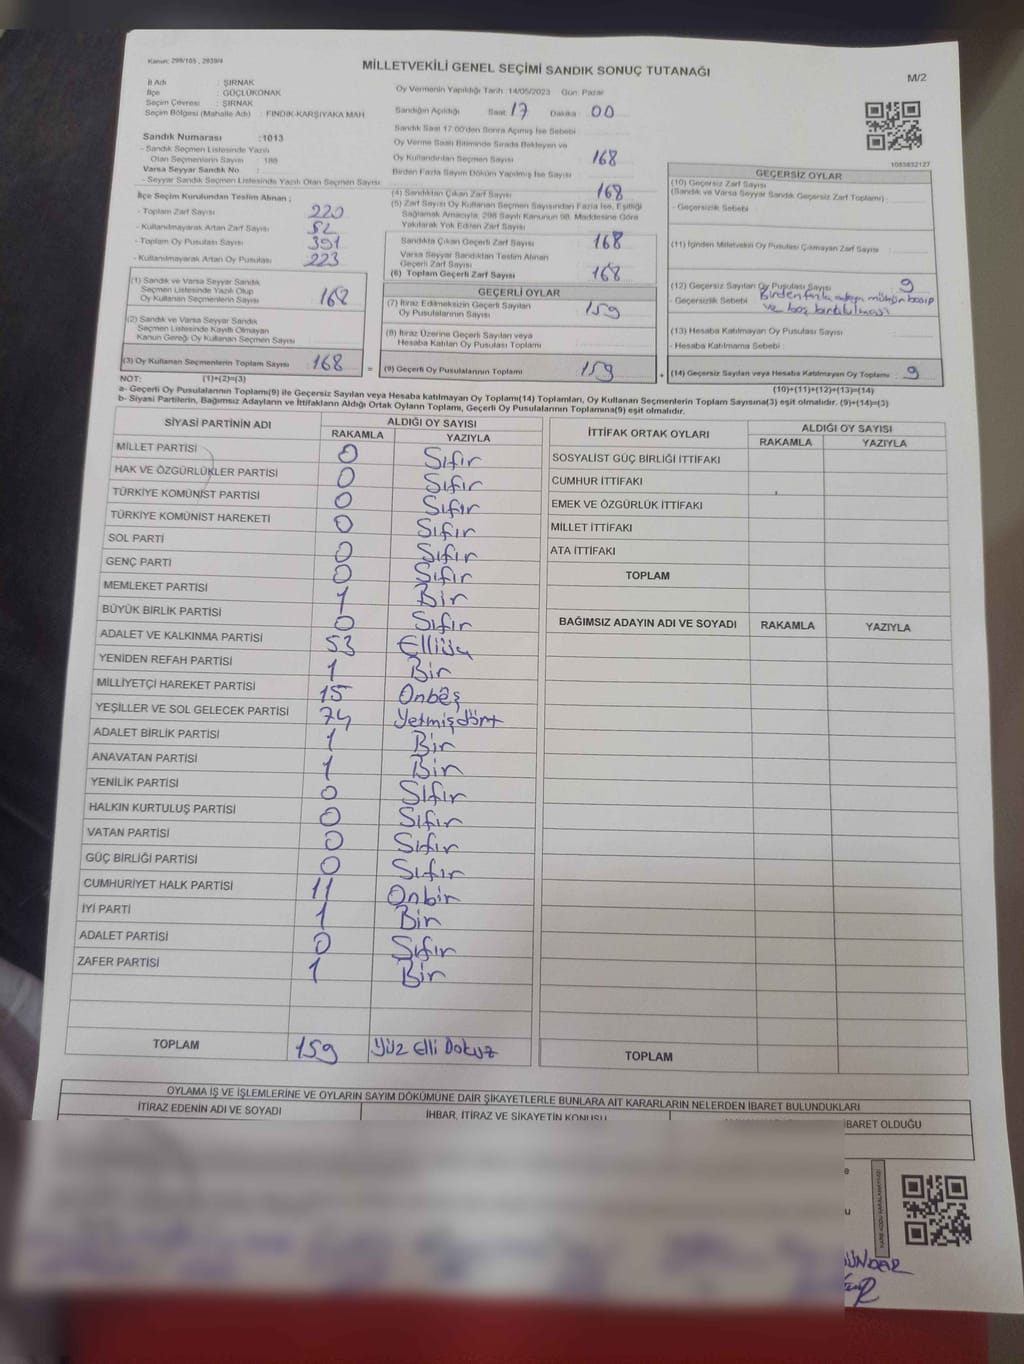 Kanun: 298/105 , 2839/4
MİLLETVEKİLİ GENEL SEÇİMİ SANDIK SONUÇ TUTANAĞI
M/2
İl Adı : ŞIRNAK
İlçe : GÜÇLÜKONAK
Seçim Çevresi : ŞIRNAK
Seçim Bölgesi (Mahalle Adı) : FINDIK-KARŞIYAKA MAH.
Sandık Numarası :1013
- Sandık Seçmen Listesinde Yazılı
Olan Seçmenlerin Sayısı : 188
Varsa Seyyar Sandık No :
- Seyyar Sandık Seçmen Listesinde Yazılı Olan Seçmen Sayısı:
İlçe Seçim Kurulundan Teslim Alınan ;
- Toplam Zarf Sayısı 220
- Kullanılmayarak Artan Zarf Sayısı 52
- Toplam Oy Pusulası Sayısı 391
- Kullanılmayarak Artan Oy Pusulası 223
(1) Sandık ve Varsa Seyyar Sandık
Seçmen Listesinde Yazılı Olup
Oy Kullanan Seçmenlerin Sayısı 168
(2) Sandık ve Varsa Seyyar Sandık
Seçmen Listesinde Kayıtlı Olmayan
Kanun Gereği Oy Kullanan Seçmen Sayısı :
(3) Oy Kullanan Seçmenlerin Toplam Sayısı : 168
Oy Vermenin Yapıldığı Tarih :14/05/2023 Gün: Pazar
Sandığın Açıldığı Saat: 17 Dakika : 00
Sandık Saat 17:00'den Sonra Açılmış İse Sebebi
Oy Verme Saati Bitiminde Sırada Bekleyen ve
Oy Kullandırılan Seçmen Sayısı 168
Birden Fazla Sayım Döküm Yapılmış İse Sayısı
(4) Sandıktan Çıkan Zarf Sayısı 168
(5) Zarf Sayısı Oy Kullanan Seçmen Sayısından Fazla İse, Eşitliği
Sağlamak Amacıyla, 298 Sayılı Kanunun 98. Maddesine Göre
Yakılarak Yok Edilen Zarf Sayısı
Sandıkta Çıkan Geçerli Zarf Sayısı : 168
Varsa Seyyar Sandıktan Teslim Alınan
Geçerli Zarf Sayısı
(6) Toplam Geçerli Zarf Sayısı : 168
GEÇERLİ OYLAR
(7) İtiraz Edilmeksizin Geçerli Sayılan
Oy Pusulalarının Sayısı : 159
(8) İtiraz Üzerine Geçerli Sayılan veya
Hesaba Katılan Oy Pusulası Toplamı
= (9) Geçerli Oy Pusulalarının Toplamı : 159
1083832127
GEÇERSİZ OYLAR
(10) Geçersiz Zarf Sayısı
(Sandık ve Varsa Seyyar Sandık Geçersiz Zarf Toplamı) :
- Geçersizlik Sebebi :
(11) İçinden Milletvekili Oy Pusulası Çıkmayan Zarf Sayısı :
(12) Geçersiz Sayılan Oy Pusulası Sayısı : 9
- Geçersizlik Sebebi : Birden fazla adaya mühür basıp
ve boş bırakılması
(13) Hesaba Katılmayan Oy Pusulası Sayısı :
- Hesaba Katılmama Sebebi :
+ (14) Geçersiz Sayılan veya Hesaba Katılmayan Oy Toplamı : 9
NOT: (1)+(2)=(3) (10)+(11)+(12)+(13)=(14)
a- Geçerli Oy Pusulalarının Toplamı(9) ile Geçersiz Sayılan veya Hesaba katılmayan Oy Toplamı(14) Toplamları, Oy Kullanan Seçmenlerin Toplam Sayısına(3) eşit olmalıdır. (9)+(14)=(3)
b- Siyasi Partilerin, Bağımsız Adayların ve İttifakların Aldığı Ortak Oyların Toplamı, Geçerli Oy Pusulalarının Toplamına(9) eşit olmalıdır.
SİYASİ PARTİNİN ADI ALDIĞI OY SAYISI
RAKAMLA YAZIYLA
MİLLET PARTİSİ 0 Sıfır
HAK VE ÖZGÜRLÜKLER PARTİSİ 0 Sıfır
TÜRKİYE KOMÜNİST PARTİSİ 0 Sıfır
TÜRKİYE KOMÜNİST HAREKETİ 0 Sıfır
SOL PARTİ 0 Sıfır
GENÇ PARTİ 0 Sıfır
MEMLEKET PARTİSİ 1 Bir
BÜYÜK BİRLİK PARTİSİ 0 Sıfır
ADALET VE KALKINMA PARTİSİ 53 Elliüç
YENİDEN REFAH PARTİSİ 1 Bir
MİLLİYETÇİ HAREKET PARTİSİ 15 Onbeş
YEŞİLLER VE SOL GELECEK PARTİSİ 74 Yetmişdört
ADALET BİRLİK PARTİSİ 1 Bir
ANAVATAN PARTİSİ 1 Bir
YENİLİK PARTİSİ 0 Sıfır
HALKIN KURTULUŞ PARTİSİ 0 Sıfır
VATAN PARTİSİ 0 Sıfır
GÜÇ BİRLİĞİ PARTİSİ 0 Sıfır
CUMHURİYET HALK PARTİSİ 11 Onbir
İYİ PARTİ 1 Bir
ADALET PARTİSİ 0 Sıfır
ZAFER PARTİSİ 1 Bir
TOPLAM 159 Yüz Elli Dokuz
İTTİFAK ORTAK OYLARI ALDIĞI OY SAYISI
RAKAMLA YAZIYLA
SOSYALİST GÜÇ BİRLİĞİ İTTİFAKI
CUMHUR İTTİFAKI
EMEK VE ÖZGÜRLÜK İTTİFAKI
MİLLET İTTİFAKI
ATA İTTİFAKI
TOPLAM
BAĞIMSIZ ADAYIN ADI VE SOYADI RAKAMLA YAZIYLA
TOPLAM
OYLAMA İŞ VE İŞLEMLERİNE VE OYLARIN SAYIM DÖKÜMÜNE DAİR ŞİKAYETLERLE BUNLARA AİT KARARLARIN NELERDEN İBARET BULUNDUKLARI
İTİRAZ EDENİN ADI VE SOYADI İHBAR, İTİRAZ VE ŞİKAYETİN KONUSU İBARET OLDUĞU